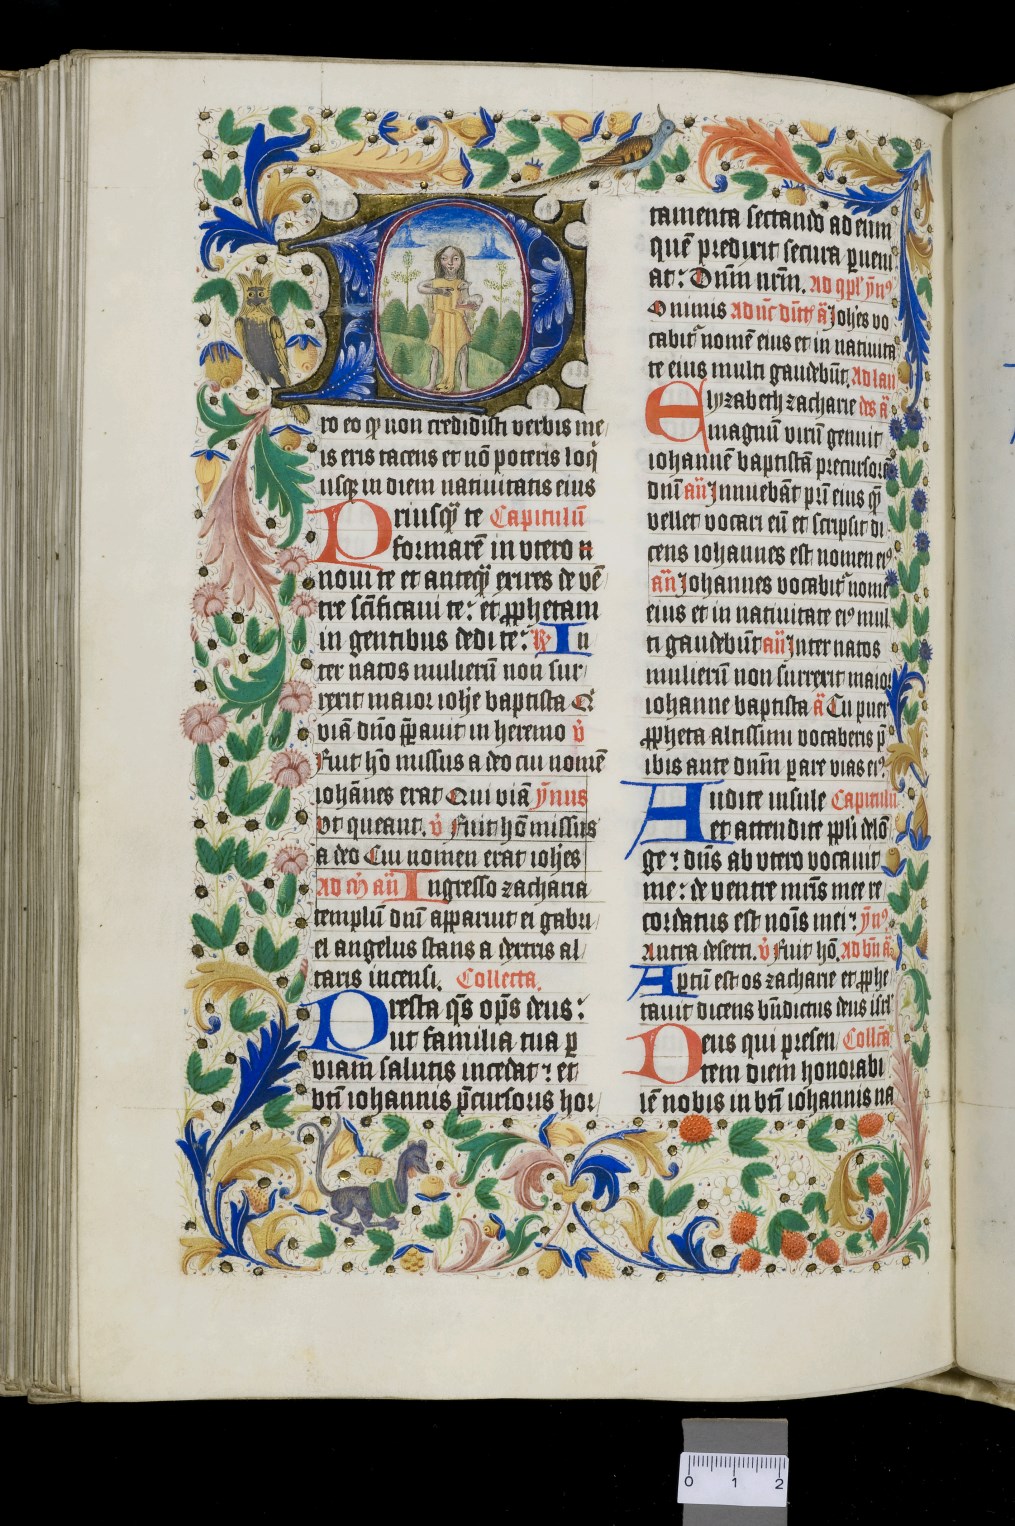 P
ro eo qꝫ non credidisti verbis me
is eris tacens et nō poteris loq̄
usqꝫ in diem natiuitatis eius
Priusqꝫ te Capitulū
formarē in vtero n
noui te et anteqꝫ exires de vē
tre sc̄ificaui te: et ꝓphetam
in gentibus dedi te: R In
ter natos mulierū non sur
rexit maior ioh̄e baptista Q
viā dn̄o p̄parauit in heremo v̄
Fuit hō missus a deo cui nomē
iohānes erat Qui viā ȳnus
Vt queant. v̄ Fuit hō missus
a deo Cui nomen erat ioh̄es
Ad m̄ an̄ Ingresso zacharia
templū dn̄i apparuit ei gabri
el angelus stans a dextris al
taris incensi. Collecta.
Presta q̄s op̄s deus:
ut familia tua p
viam salutis incedat: et
bt̄i iohannis p̄cursoris hor
tamenta sectando ad eum
quē predixit secura perueni
at: Dn̄m nr̄m. Ad ȳn
O nimis Ad Johes vo
cabit̄ nomē eius et in natiuita
te eius multi gaudebūt. Ad lau
Elyzabeth zacharie des ā
magnū virū genuit
iohannē baptistā precursorē
dn̄i an̄ Innuebāt pr̄i eius qꝫ
vellet vocari eū et scripsit di
cens iohannes est nomen eiꝰ
an̄ Johannes vocabit̄ nomē
eius et in natiuitate eiꝰ mul
ti gaudebūt an̄ Inter natos
mulierū non surrexit maior
iohanne baptista ā Tu puer
ꝓpheta altissimi vocaberis p̄
ibis ante dn̄m parare vias eiꝰ
Audite insule Capitulū
et attendite ppl̄i de lō
ge: dn̄s ab vtero vocauit
me: de ventre mr̄is mee re
cordatus est nōis mei: ȳnꝰ
Antra deserti. v̄ Fuit hō. Ad bn̄ ā
Aptū est os zacharie et ꝓphe
tauit dicens bn̄dictus deus isrl̄
Deus qui presen Collc̄a
tem diem honorabi
lē nobis in bt̄i iohannis na
0 1 2